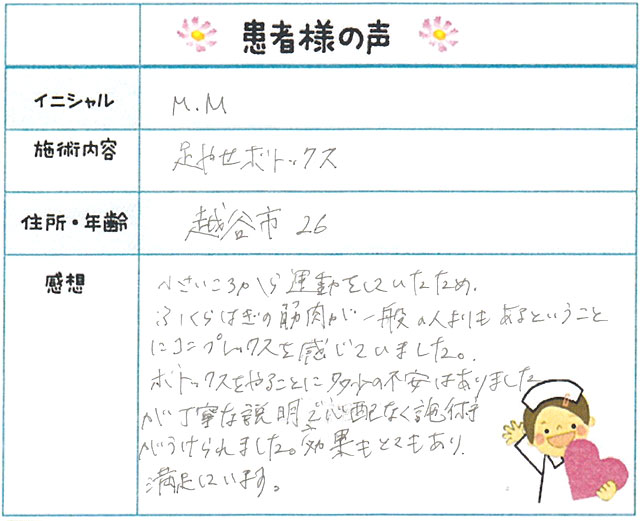 患者様の声
イニシャル
M.M
施術内容
足やせボトックス
住所・年齢
越谷市 26
感想
小さいころから運動をしていたため、
ふくらはぎの筋肉が一般の人よりもあるということ
にコンプレックスを感じていました。
ボトックスをやることに多少の不安はありました
が丁寧な説明で心配なく施術
がうけられました。効果もとてもあり
満足しています。